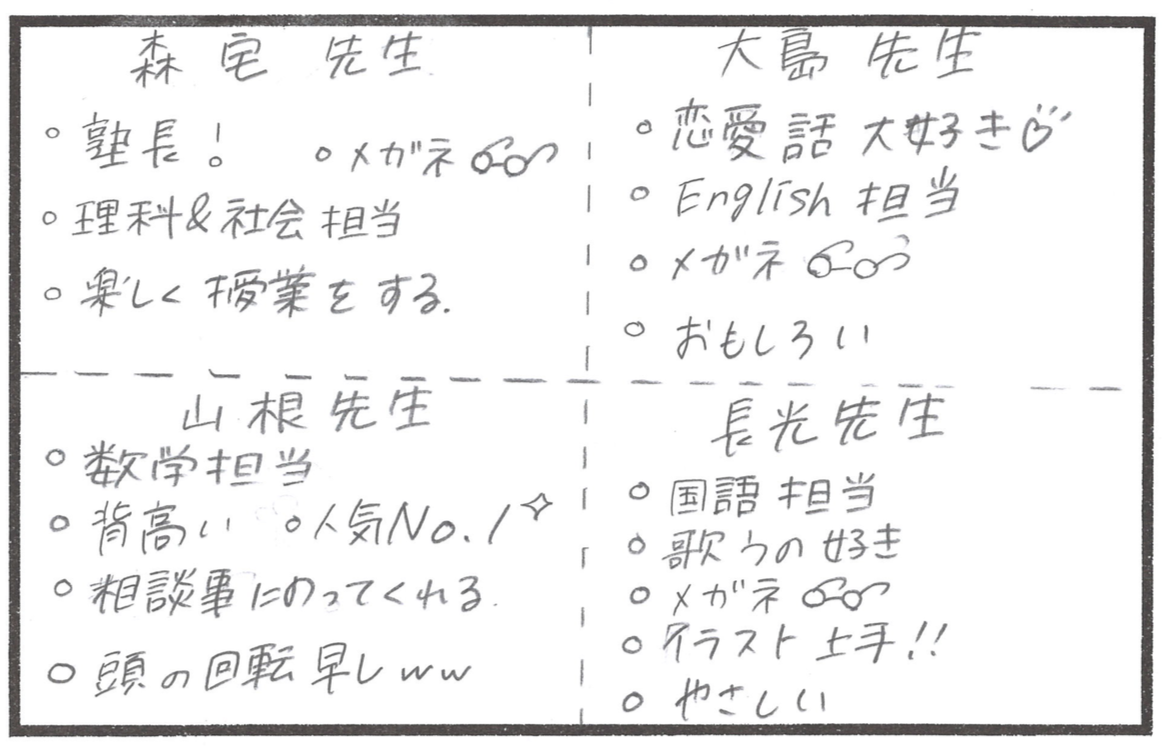 森宅 先生
○ 塾長！ ○メガネ
○ 理科&社会 担当
○ 楽しく 授業をする.
大島 先生
○ 恋愛話 大好き♡
○ English 担当
○ メガネ
○ おもしろい
山根先生
○ 数学担当
○ 背高い ○人気No.1✧
○ 相談事にのってくれる.
○ 頭の回転早しww
長光先生
○ 国語 担当
○ 歌うの好き
○ メガネ
○ イラスト 上手!!
○ やさしい